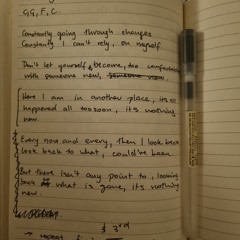 GG, F, C.
Constantly going through changes
Constantly I can't rely, on myself
Don't let yourself become, too comfortable
with someone new,
Here I am in another place, it's all
happened all too soon, it's nothing
new.
Every now and every, then I look back
look back to what, could've been
But there isn't any point to, looking
back what is gone, it's nothing
new.
3rd
repeat